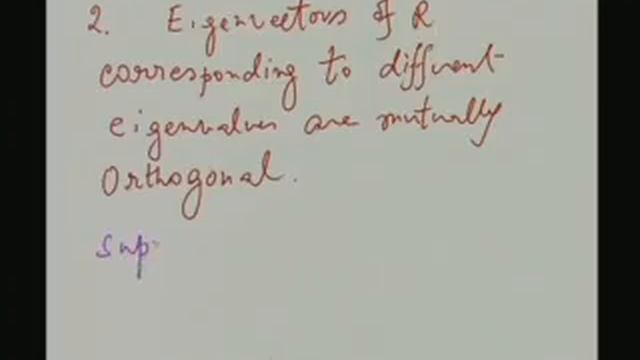 2. Eigenvectors of R
corresponding to different
eigenvalues are mutually
Orthogonal.
Sup